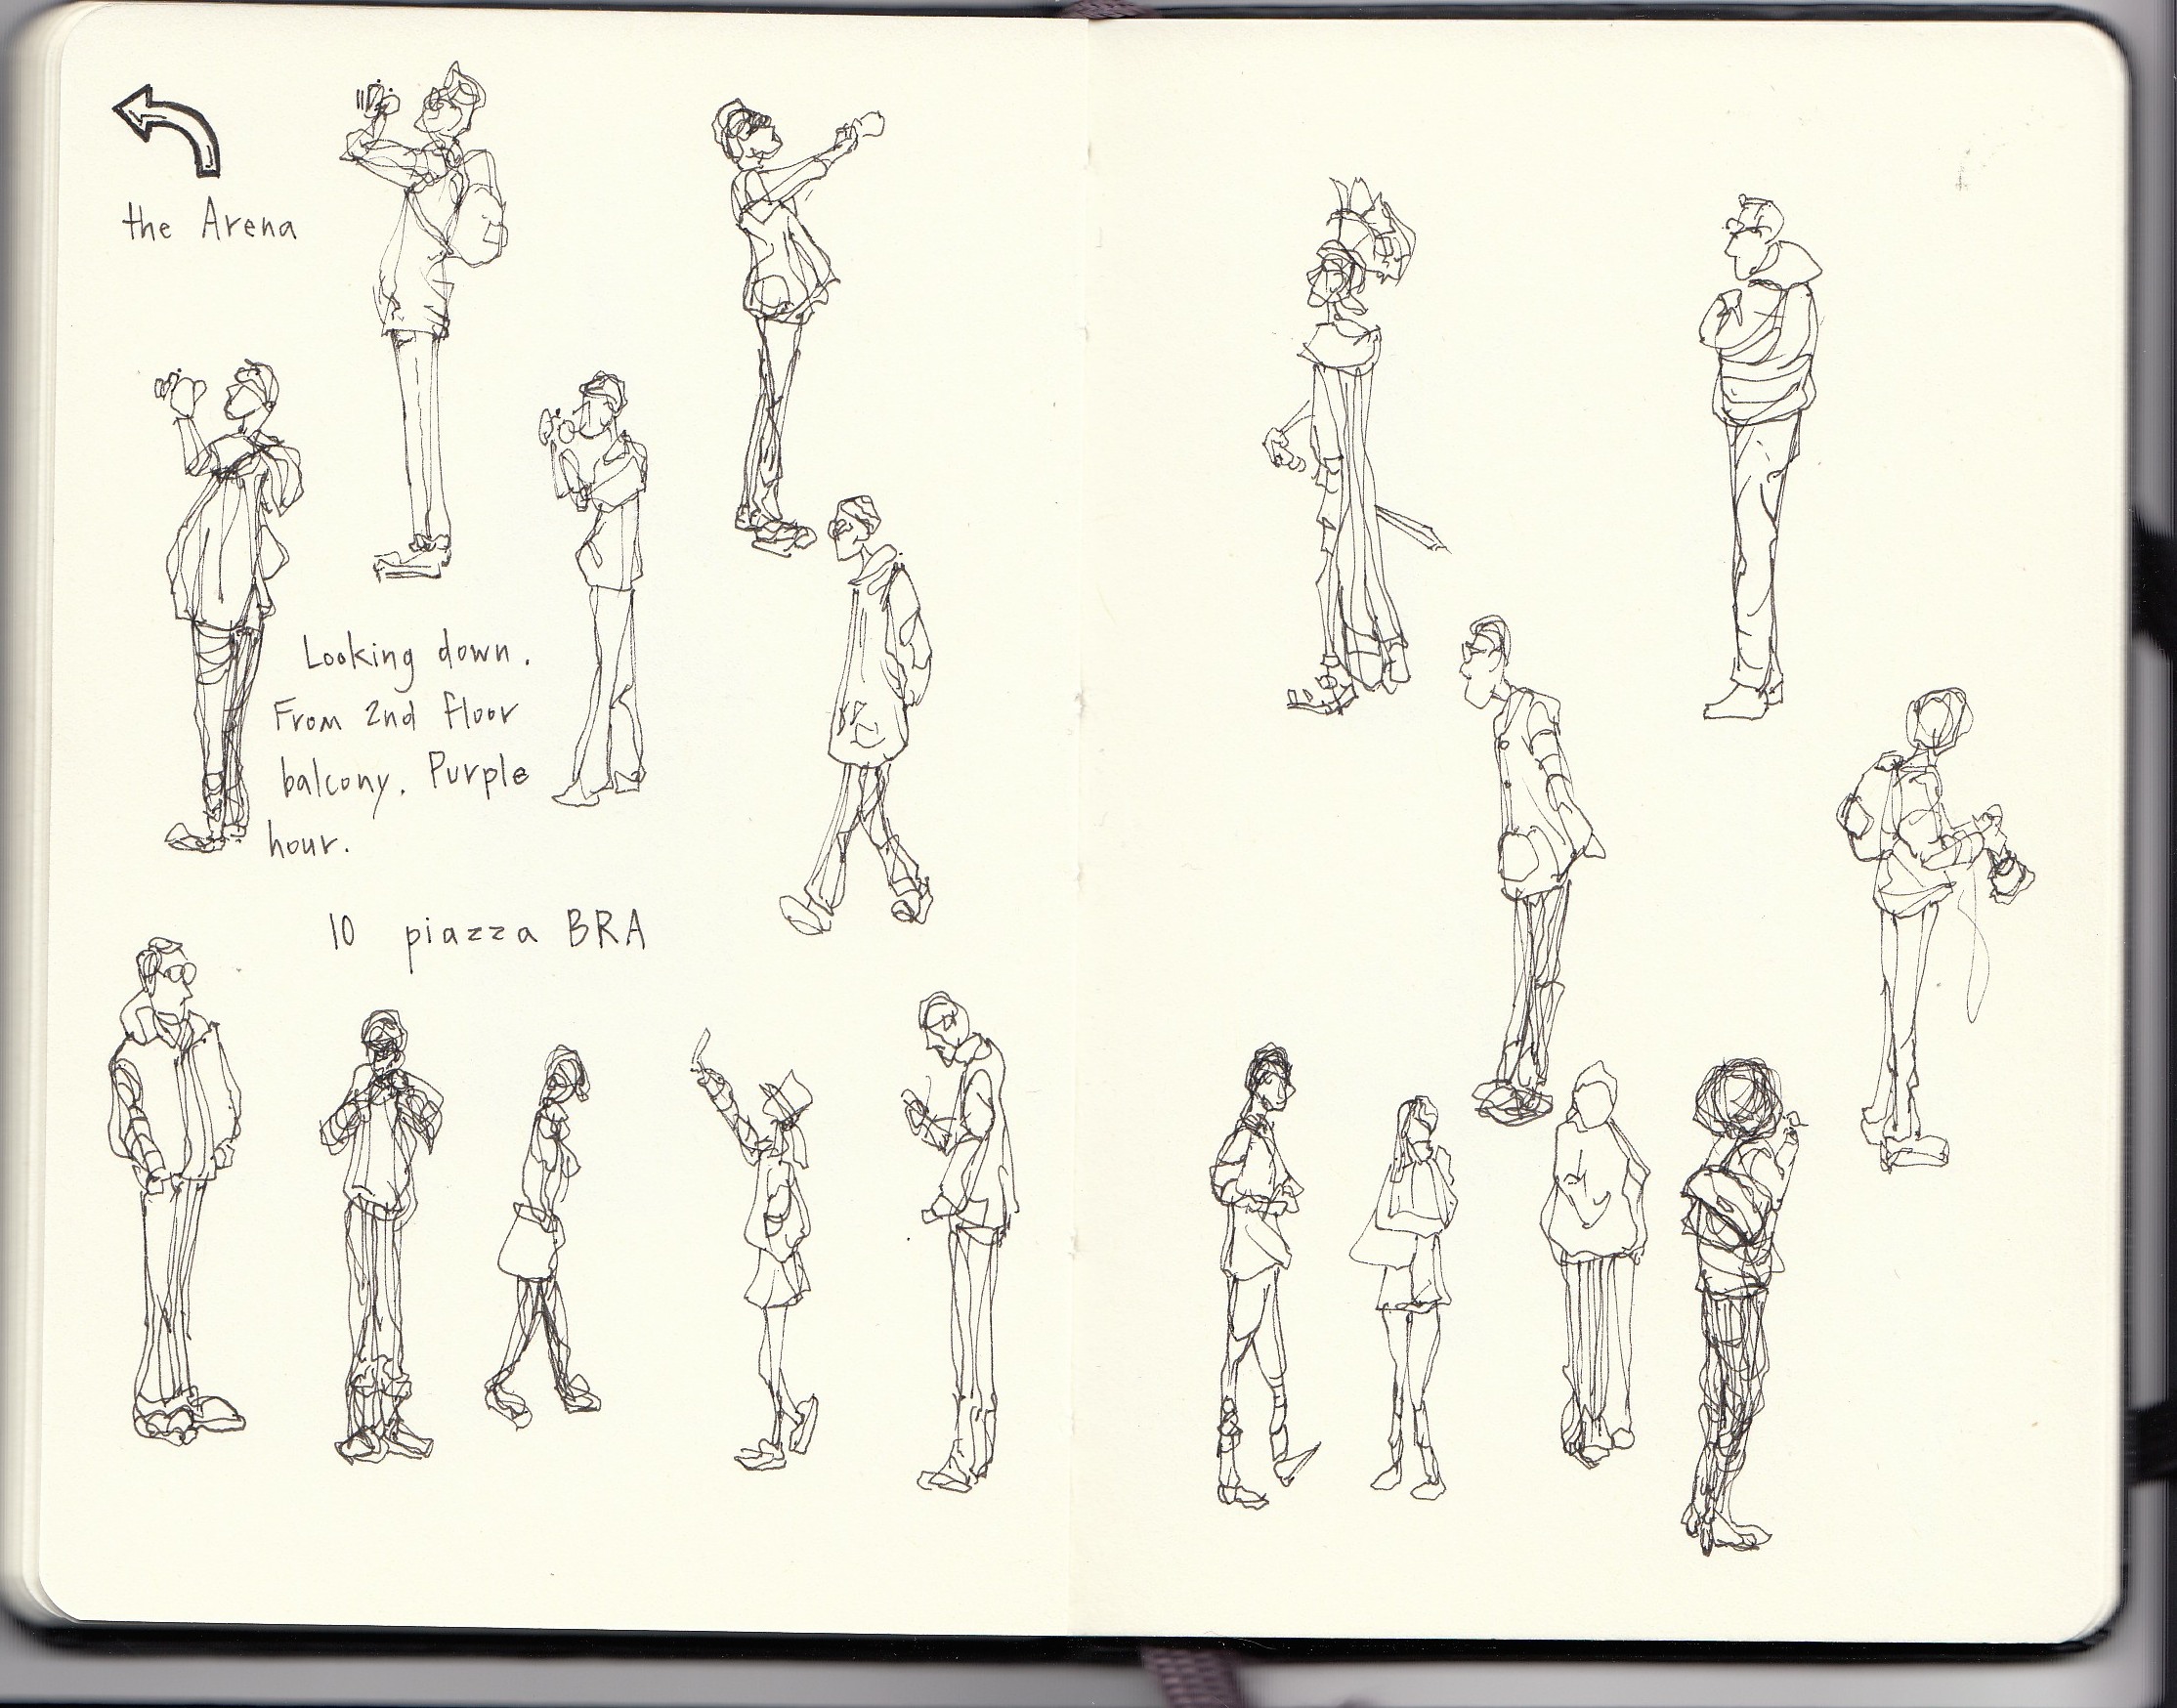 the Arena
Looking down.
From 2nd floor
balcony. Purple
hour.
10 piazza BRA